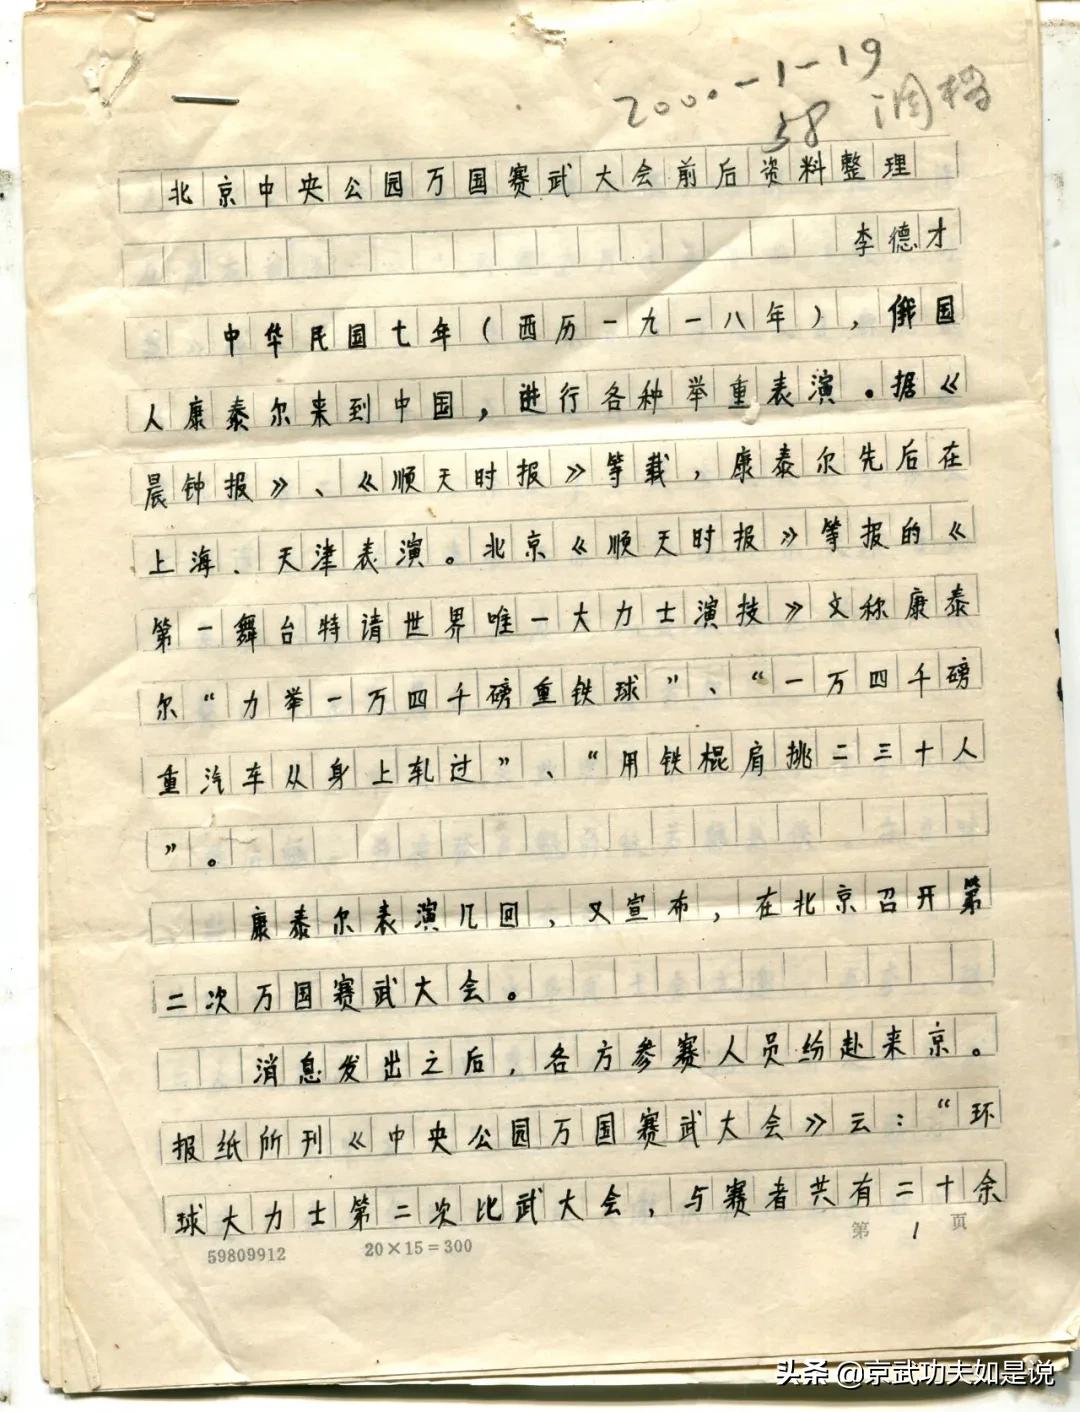 2000-1-19
58 调档
北京中央公园万国赛武大会前后资料整理
李德才
中华民国七年(西历一九一八年),俄国
人康泰尔来到中国,进行各种举重表演。据《
晨钟报》、《顺天时报》等载,康泰尔先后在
上海、天津表演。北京《顺天时报》等报的《
第一舞台特请世界唯一大力士演技》文称康泰
尔“力举一万四千磅重铁球”、“一万四千磅
重汽车从身上轧过”、“用铁棍肩挑二三十人
”。
康泰尔表演几回,又宣布,在北京召开第
二次万国赛武大会。
消息发出之后,各方参赛人员纷赴来京。
报纸所刊《中央公园万国赛武大会》云:“环
球大力士第二次比武大会,与赛者共有二十余
59809912 20×15=300 第 1 页
头条 @京武功夫如是说